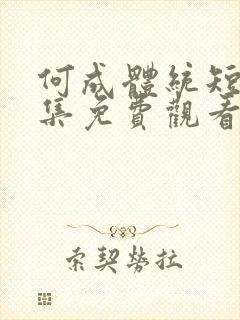 何成體統短
集免費觀看
索契勞拉